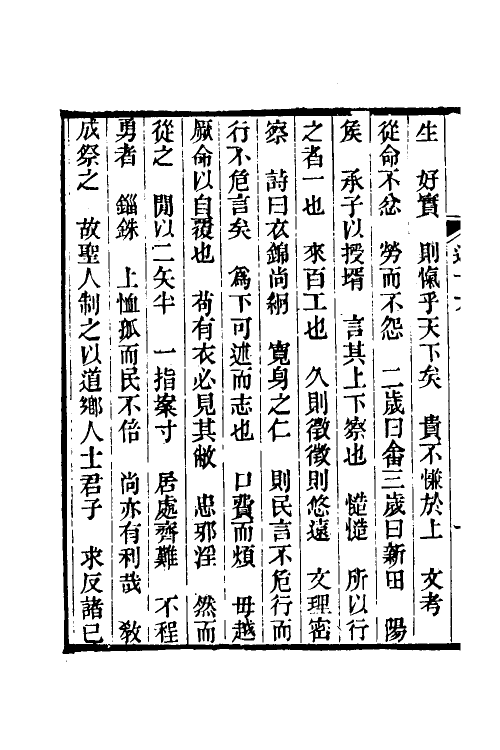 生　好實　則愾乎天下矣　貴不慊於上　文考
從命不忿　勞而不怨　二歲曰畬三歲曰新田　陽
矦　承子以授壻　言其上下察也　慥慥　所以行
之者一也　來百工也　久則徵徵則悠遠　文理密
察　詩曰衣錦尚絅　寬身之仁　則民言不危行而
行不危言矣　爲下可述而志也　口費而煩　毋越
厥命以自覆也　苟有衣必見其敝　忠邪淫　然而
從之　閒以二矢半　一指案寸　居處齊難　不程
勇者　錙銖　上恤孤而民不倍　尚亦有利哉　敎
成祭之　故聖人制之以道鄉人士君子　求反諸已